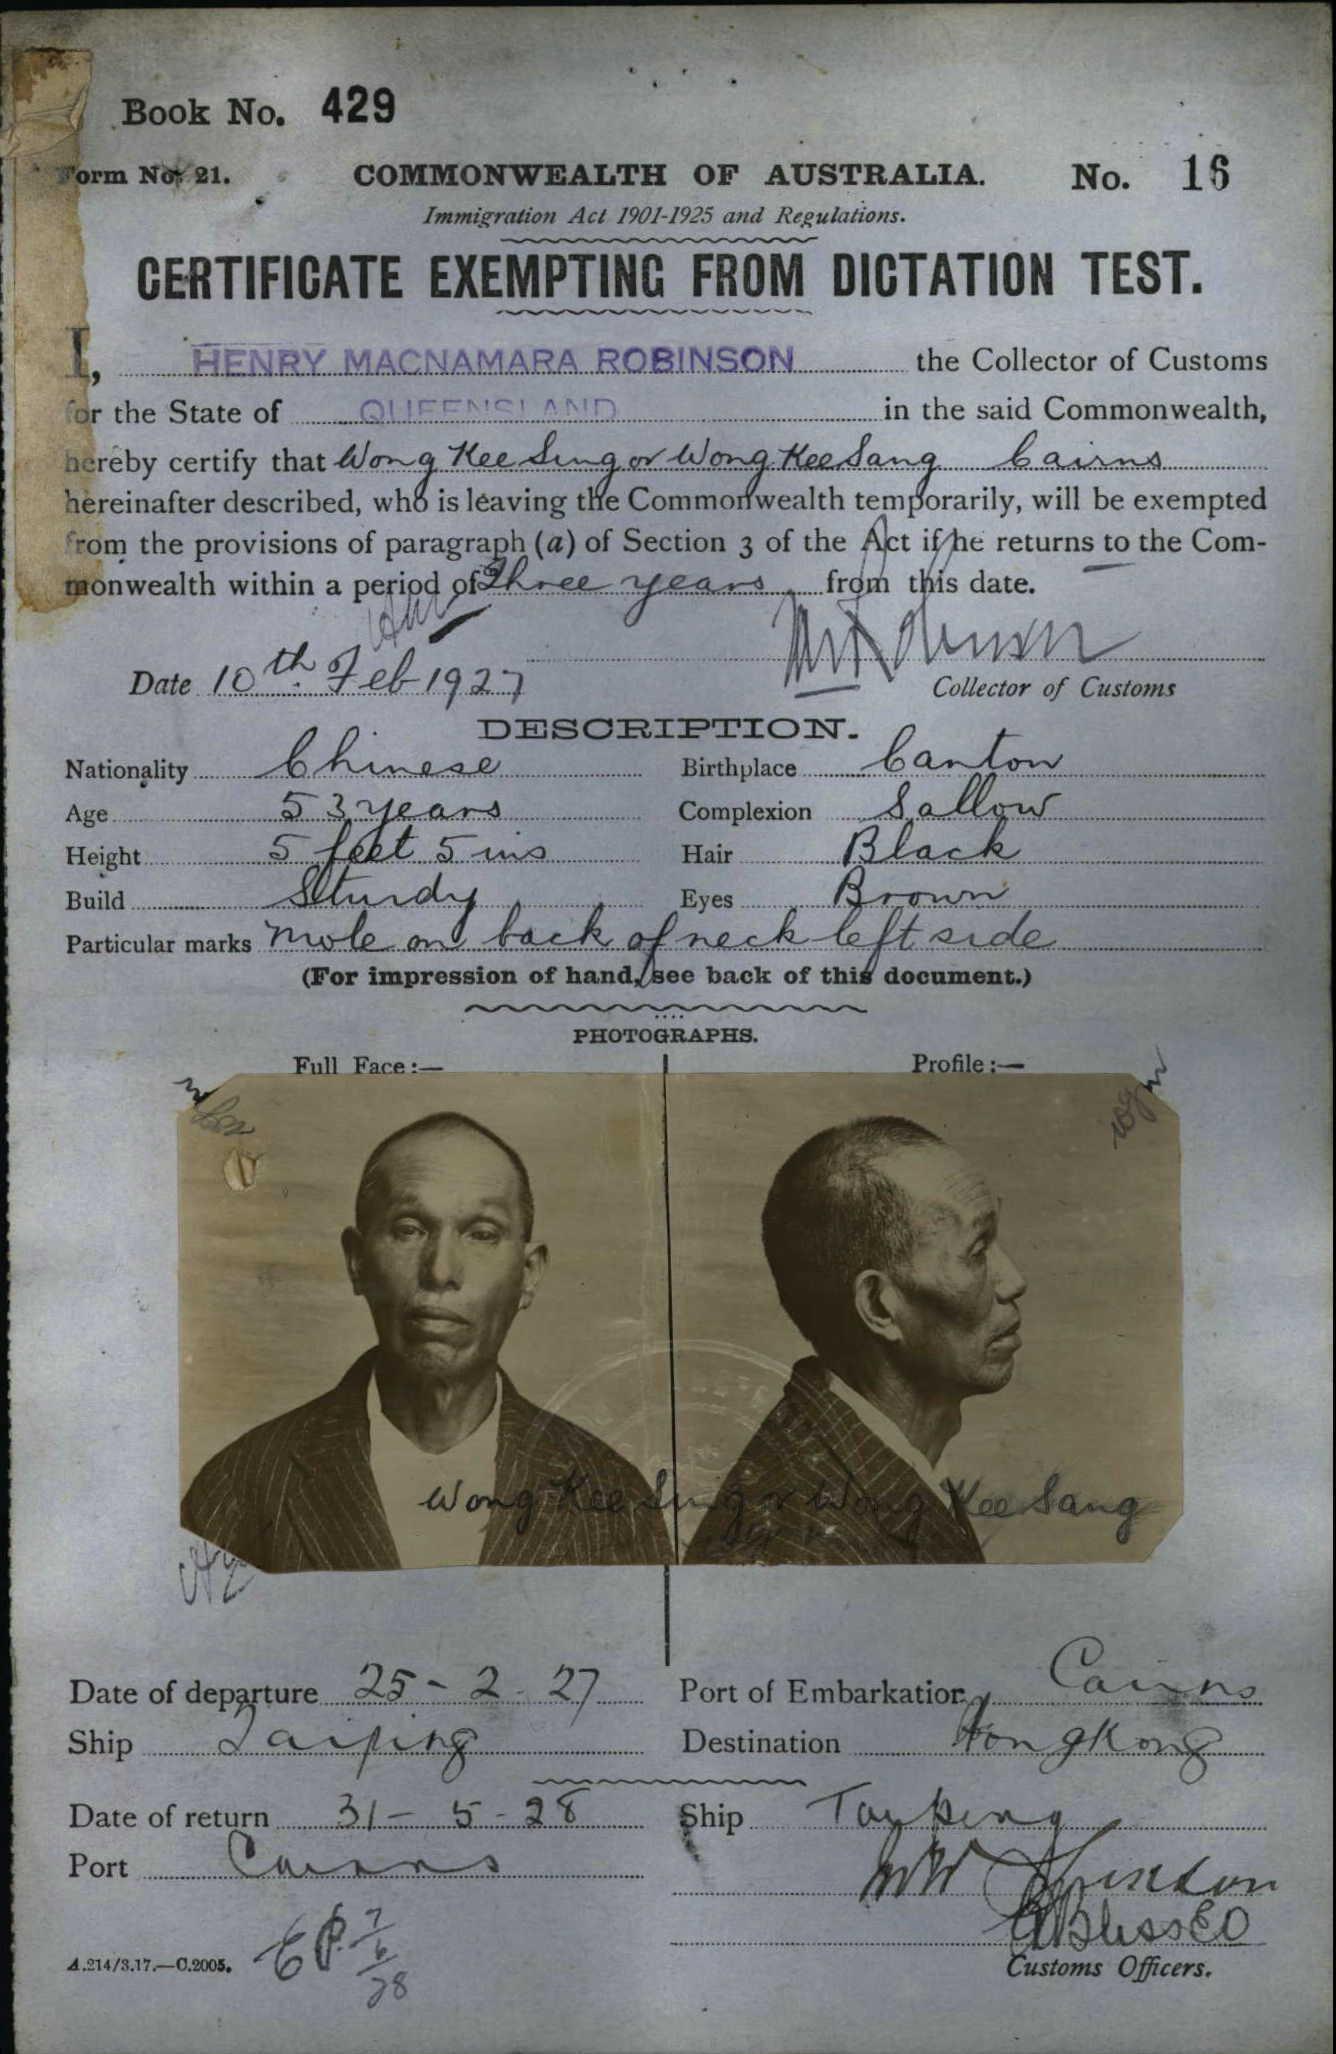 Book No. 429
Form No. 21. COMMONWEALTH OF AUSTRALIA. No. 16
Immigration Act 1901-1925 and Regulations.
CERTIFICATE EXEMPTING FROM DICTATION TEST.
I, HENRY MACNAMARA ROBINSON the Collector of Customs
for the State of QUEENSLAND in the said Commonwealth,
hereby certify that Wong Kee Sing or Wong Kee Sang Cairns
hereinafter described, who is leaving the Commonwealth temporarily, will be exempted
from the provisions of paragraph (a) of Section 3 of the Act if he returns to the Com-
monwealth within a period of Three years from this date.
Date 10th Feb 1927
Collector of Customs
DESCRIPTION.
Nationality Chinese Birthplace Canton
Age 53 years Complexion Sallow
Height 5 feet 5 ins Hair Black
Build Sturdy Eyes Brown
Particular marks Mole on back of neck left side
(For impression of hand, see back of this document.)
PHOTOGRAPHS.
Full Face:— Profile:—
Wong Kee Sing or Wong Kee Sang
Date of departure 25-2-27 Port of Embarkation Cairns
Ship Taiping Destination Hongkong
Date of return 31-5-28 Ship Taiping
Port Cairns
A.214/3.17.—C.2005.
7
6
28
Customs Officers.